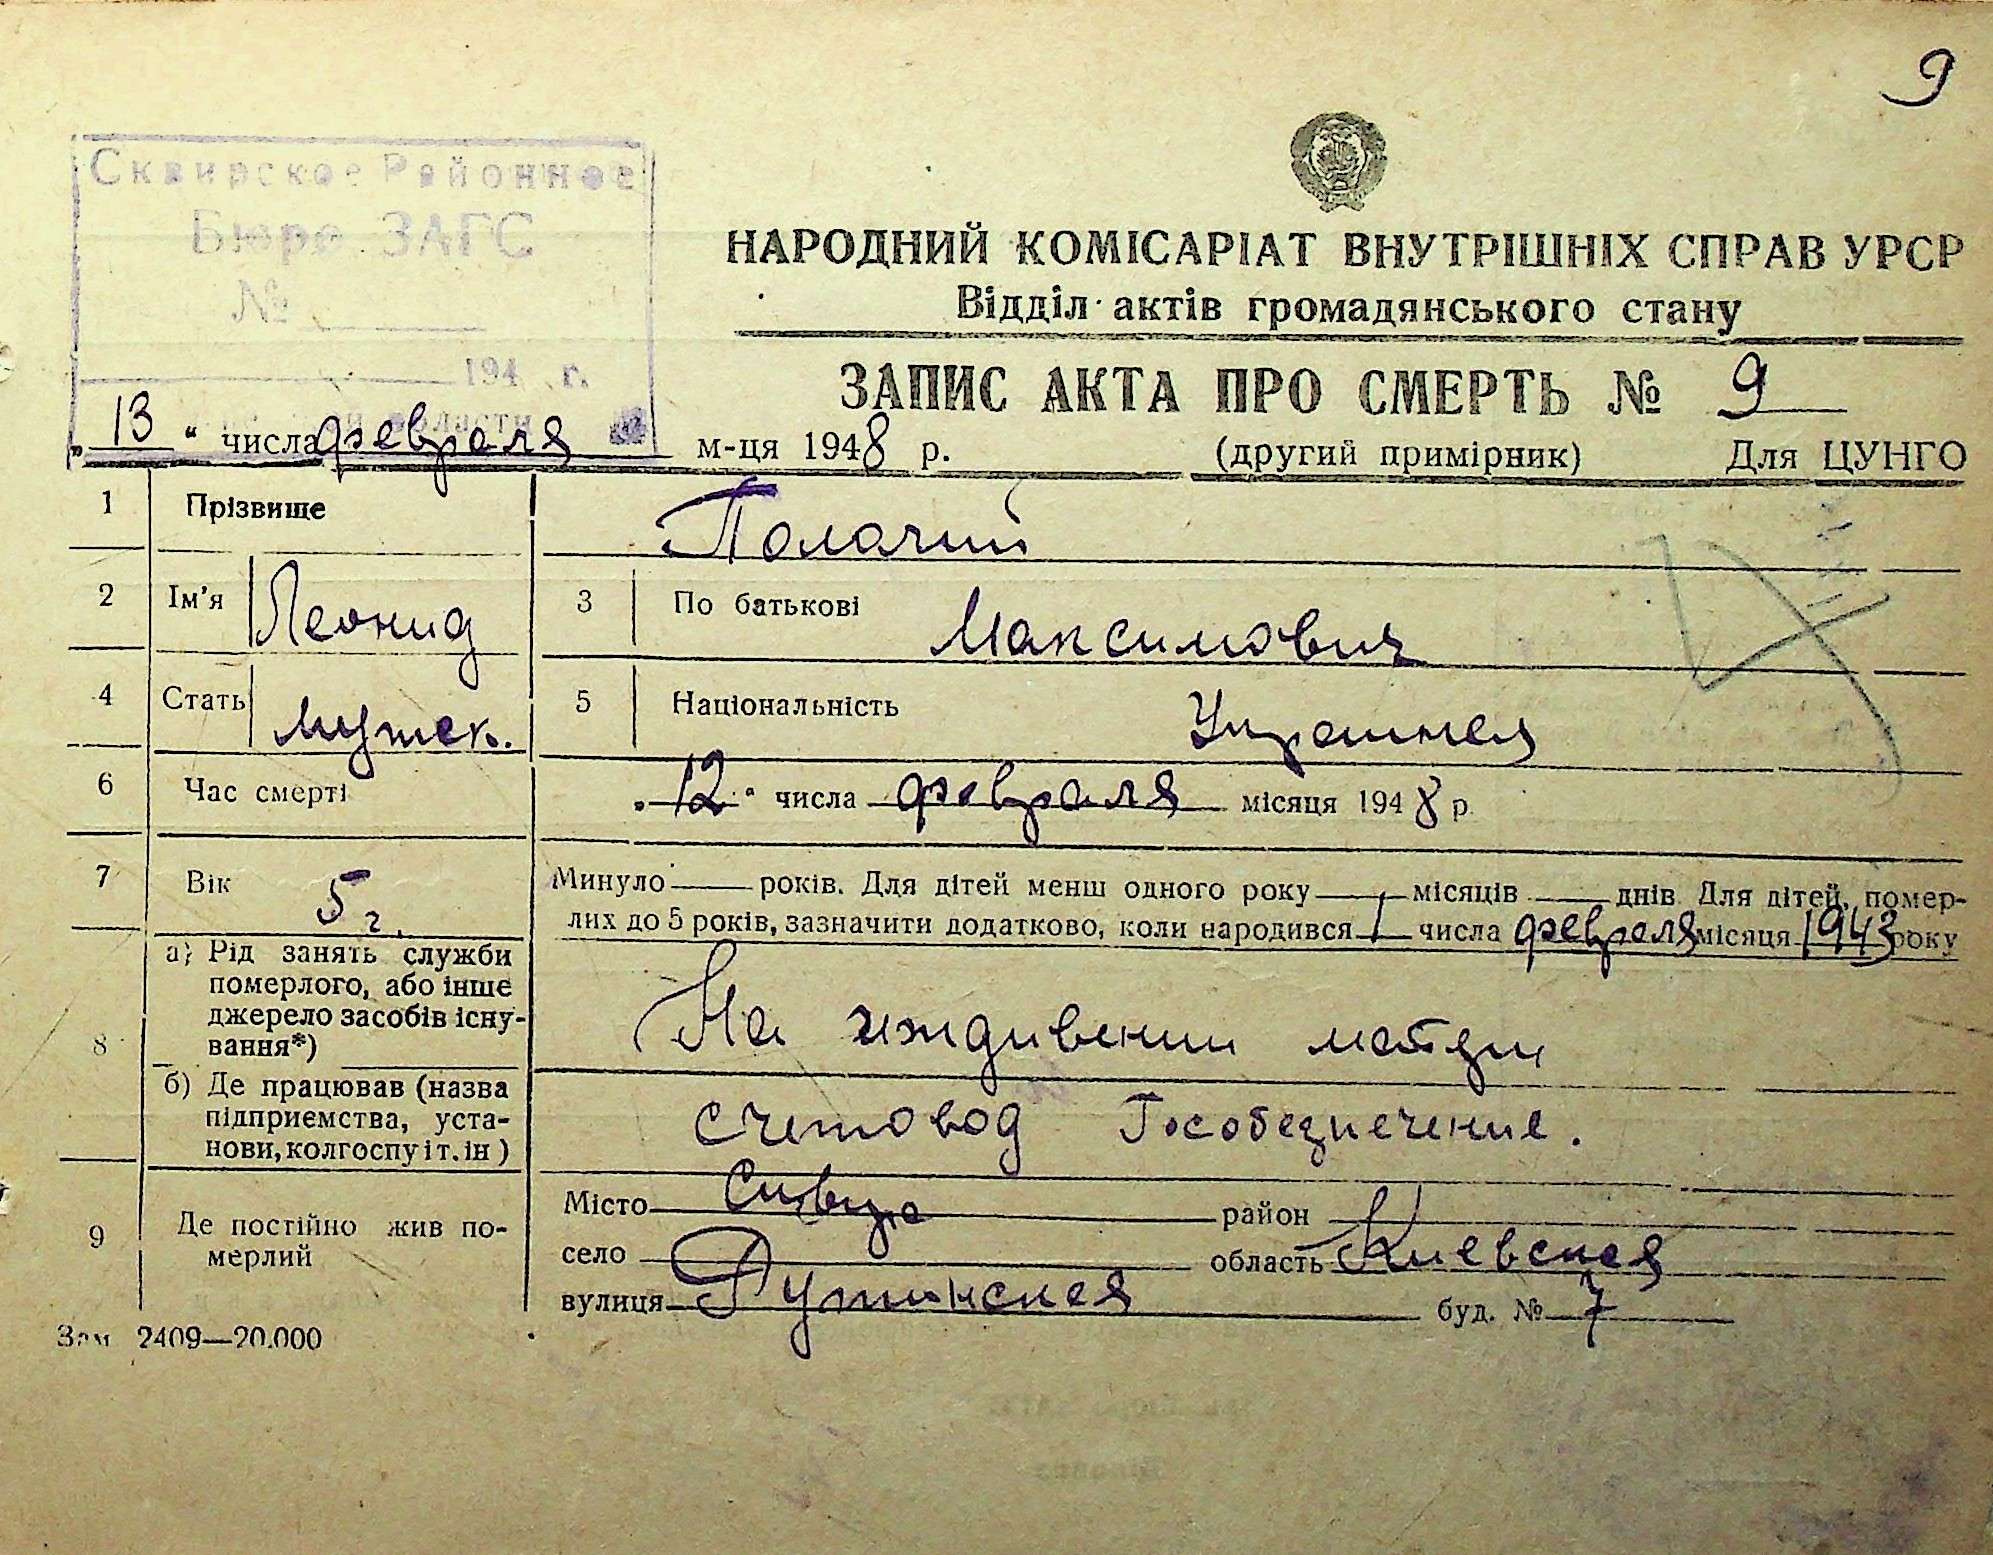 9
Сквирское Районное
Бюро ЗАГС
№
194 г.
области
НАРОДНИЙ КОМІСАРІАТ ВНУТРІШНІХ СПРАВ УРСР
Відділ актів громадянського стану
ЗАПИС АКТА ПРО СМЕРТЬ № 9
„13“ числа февраля м-ця 1948 р. (другий примірник) Для ЦУНГО
1 Прізвище Полочий
2 Ім'я Леонид 3 По батькові Максимович
4 Стать мужск. 5 Національність Украинец
6 Час смерті „12“ числа февраля місяця 1948 р.
7 Вік 5 г. Минуло — років. Для дітей менш одного року — місяців — днів Для дітей, помер-
лих до 5 років, зазначити додатково, коли народився 1 числа февраля місяця 1943 року
8 а) Рід занять служби
померлого, або інше
джерело засобів існу-
вання*)
На иждивении матери
б) Де працював (назва
підприємства, уста-
нови, колгоспу і т. ін)
счетовод Гособезпечение.
9 Де постійно жив по-
мерлий
Місто Сквира район
село область Киевская
вулиця Ружинская буд. № 7
Зам 2409—20.000